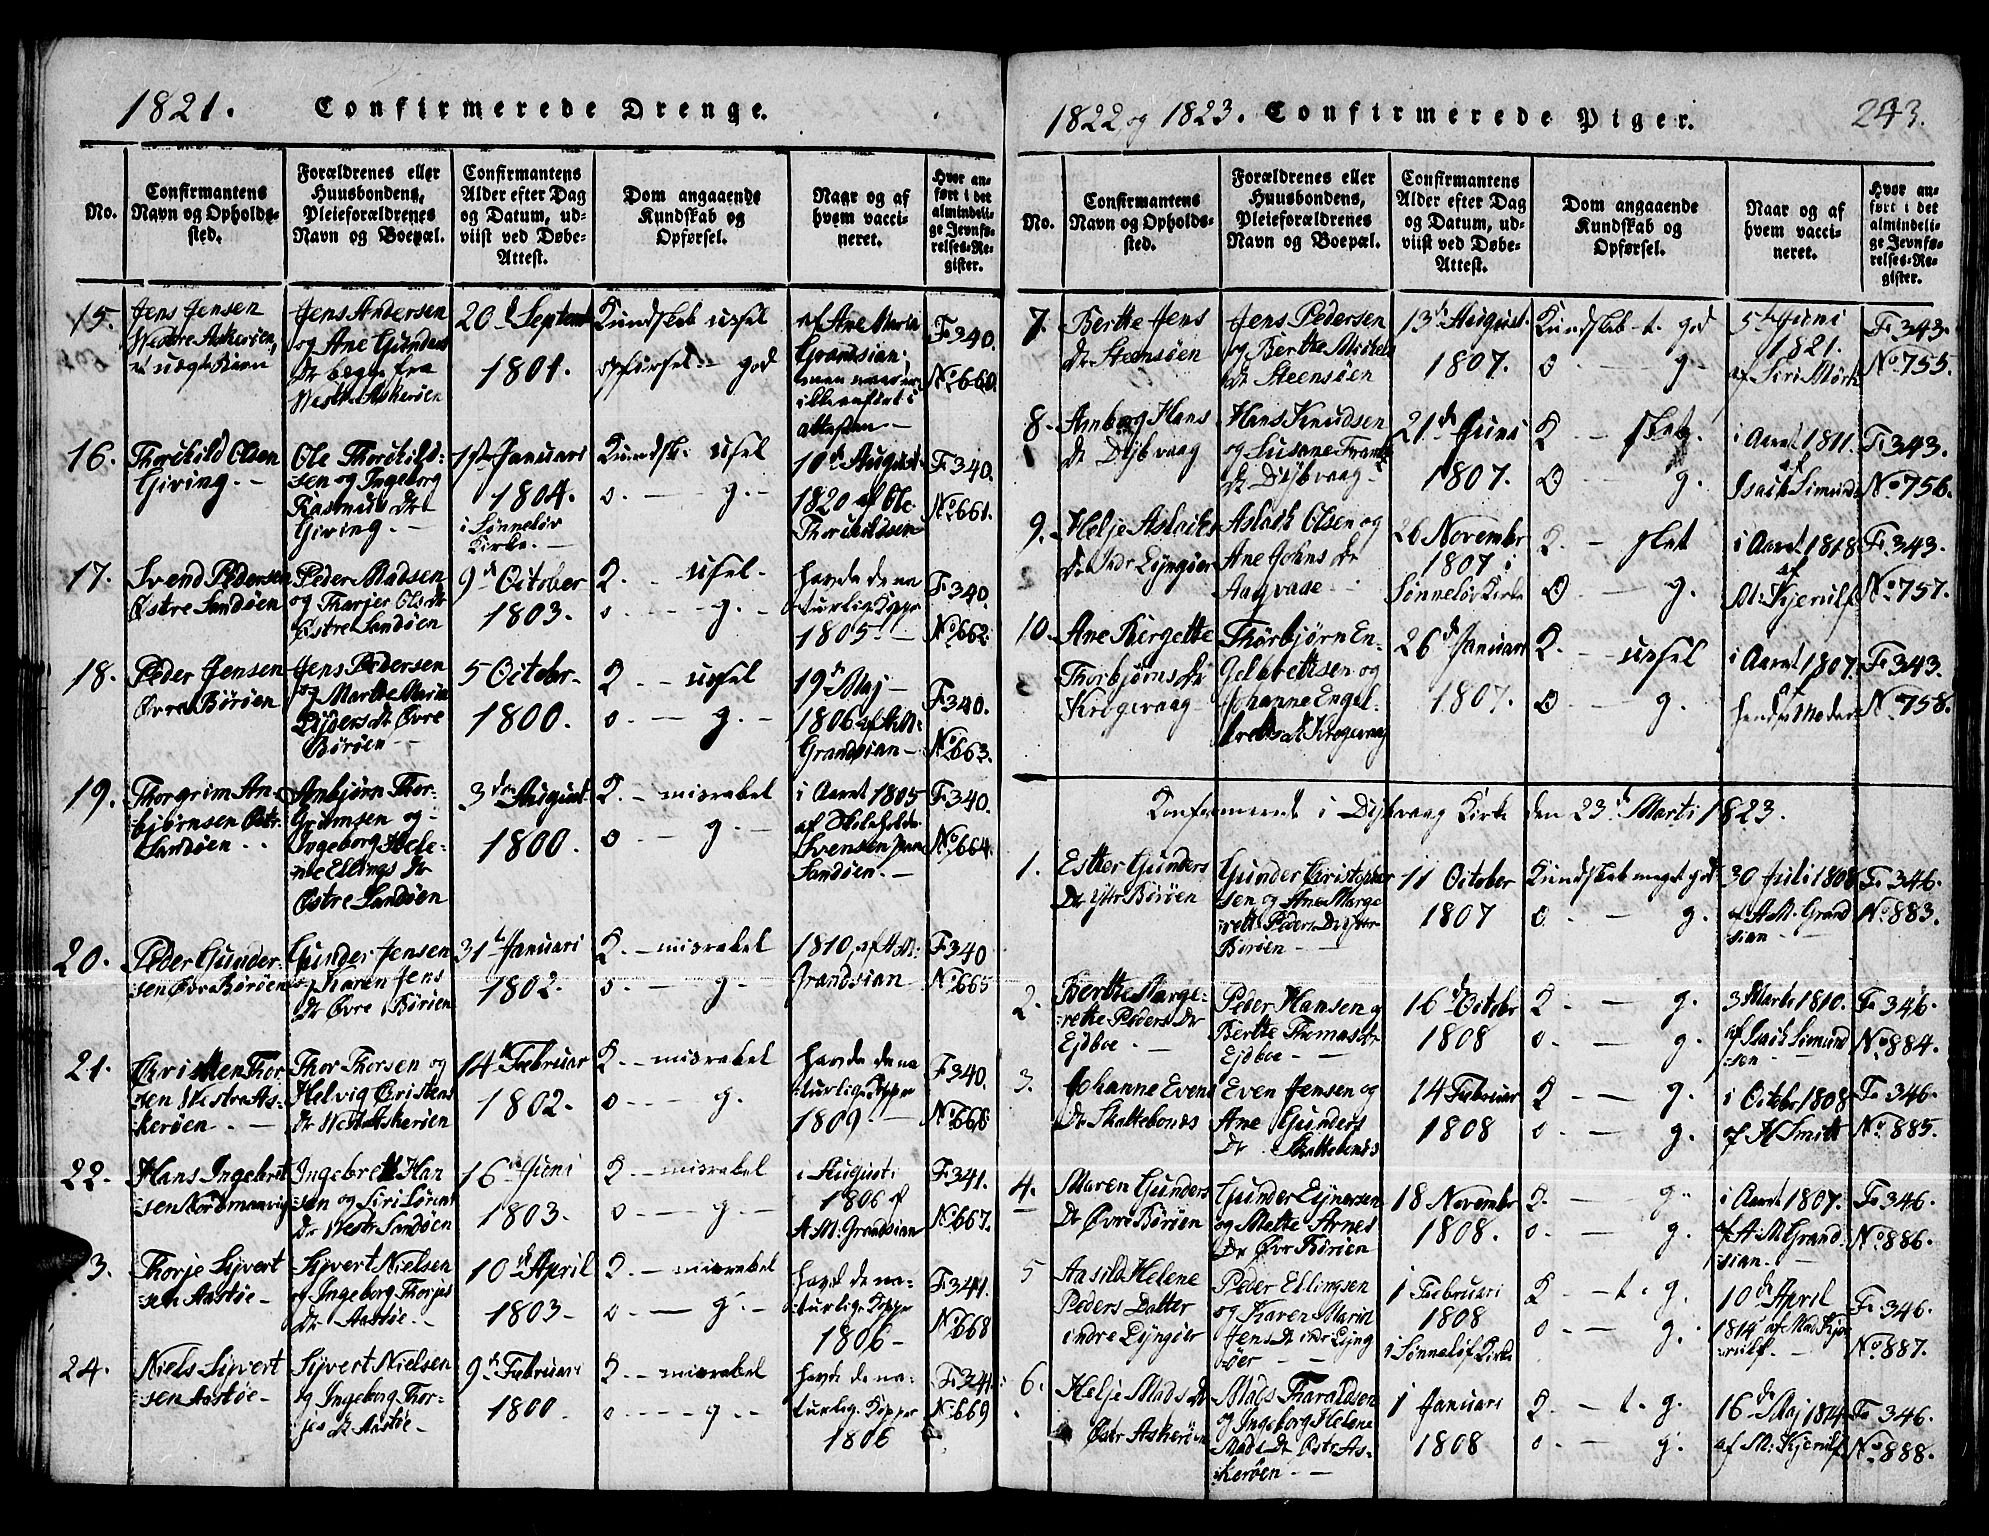 1821. Confirmerede Drenge.
No.
Confirmantens
Navn og Opholds-
sted.
Forældrenes eller
Huusbondens,
Pleieforældrenes
Navn og Boepæl.
Confirmantens
Alder efter Dag
og Datum, ud-
viist ved Døbe-
Attest.
Dom angaaende
Kundskab og
Opførsel.
Naar og af
hvem vacci-
neret.
Hvor an-
ført i det
almindeli-
ge Jevnfø-
relses-Re-
gister.
15.
Jens Jensen
Westre Askerøen,
Jens Andersen
og Ane Gunders
Dr begge fra
Westre Askerøen
20d Septem
1801.
Kundskab ussel
opførsel - god
af Ane Maria
Grandsian,
ikke anført i
attesten -
F. 340.
No 660.
16.
Thorkild Olsen
Giving. -
Ole Thorkild-
sen og Ingeborg
Rasmus Dr
Giving. -
1ste Januari
1804.
i Sønneløv
Kirke. -
Kundsk. usel
o. - g. -
10de August
1820 af Ole
Thorkildsen
F. 340.
No 661.
17.
Svend Pedersen
Østre Sandøen
Peder Madsen
og Tharjer Ols Dr
Østre Sandøen
9d October
1803.
K. - usel.
o. - g. -
havde de na
turlig Kopper
1805. -
F. 340.
No 662.
18.
Peder Jensen
Øvre Børøen
Jens Pedersen
og Marthe Maria
Børøen -
5 Octobr-
1800.
K. - ussel
o. - g. -
19d Maj -
1806 af A.M.
Grandsian -
F. 340.
No 663.
19.
Thorgrim An-
bjørnsen Østr.
Sandøen. .
Anbjørn Thor-
Grimsen og -
Ingeborg Hele-
ne Ellings Dr
Østre Sandøen
3die August
1800.
K. - misrabel
o - g. -
i Aaret 1805
Svensen
Sandøen. -
F. 340.
No 664.
20.
Peder Gunder-
sen Øvr Børøen
Gunder Jensen
og Karen Jens
Dr Øvre Børøen
31te Januari
1802.
K. - misrabel
o. - g. -
1810, af A.M.
Grandsian
F. 340
No 665
21.
Christen Thor
sen Westre As-
kerøen. -
Thor Thorsen og
Helvig Cristens
Dr West Askerøen
14d Februar
1802.
K. - misrabel
o - g.
havde de na
turlig Kopper
1809. -
F. 340.
No 666
22.
Hans Ingebret
sen Nordmanvig
Ingebrett Han
sen og Siri Lørents
Dr Westr Sandøen
16de Juni
1803.
K. - misrabel
o - g. -
i August
1806 af
A.M. Grandsian
F. 341.
No 667.
23.
Thorje Sijvert
sen Aastøe -
Sijvert Nielsen
og Ingeborg Thorjes
Dr Aastøe. -
10d April
1803 -
K. - misrabel
o - g. -
havt de na-
turlig Kopper
1806 -
F. 341.
No 668
24.
Niels Sijvert
sen Aastøe -
Sijvert Nielsen
og Ingeborg Thor-
jes Dr Aastøe -
9de Februari
1800
K. - misrabel
o - g. -
havt de na-
turlig Kopper
1806
F. 341.
No 669
1822 og 1823. Confirmerede Piger. 243.
No.
Confirmantens
Navn og Opholds-
sted.
Forældrenes eller
Huusbondens,
Pleieforældrenes
Navn og Boepæl.
Confirmantens
Alder efter Dag
og Datum, ud-
viist ved Døbe-
Attest.
Dom angaaende
Kundskab og
Opførsel.
Naar og af
hvem vacci-
neret.
Hvor an-
ført i det
almindeli-
ge Jevnfø-
relses-Re-
gister.
7.
Berthe Jens
Dr Steensøen
Jens Pedersen
og Berthe Mickels
Dr Steensøen
13d August.
1807.
Kundskab - t. god
O. - g.
5te Juni
1821.
af Siri Mørk
F. 343.
No 755.
8.
Amborg Hans
Dr Dijbvaag
Hans Knudsen
og Susane Frants
Dr Dijbvaag -
21de Juni
1807.
K. - slet.
O - g.
i Aaret 1811.
af
Isack Simunds
F. 343.
No 756.
9.
Helje Aslacks
Dr Indr Lijngøer
Aslack Olsen og
Ane Johns Dr
Aaqvase -
26 Novembr
1807 i
Sønneløv Kirke
K. - slet
O - g.
i Aaret 1818
af
M: Kjerulf
F. 343.
No 757.
10.
Ane Birgette
Thorbjørns Dr
Krogevaag -
Thorbjørn En-
gelbrettsen og
Johanne Engel-
bretts Dr Krogevaag
26d Januari
1807.
K. - ussel
O - g.
i Aaret 1807.
af
hendes Moder
F. 343.
No 758.
Konfirmerede i Dijbvaag Kirke den 23de Marti 1823.
1.
Esther Gunders
Dr Ijttr Børøen
Gunder Christopher
sen og Ane Marge
rette Peders Dr Ijttr
Børøen -
11 October
1807
Kundskab meget god
o. - g.
30 Juli 1808
af A.M. Grand
sian -
F. 346.
No 883.
2.
Berthe Marge-
rethe Peders Dr
Ejdboe. -
Peder Hansen og
Berthe Thomas Dr
Ejdboe -
16d Octobr
1808
K - g.
o. - g.
3 Marti 1810.
af Isack Simund
sen -
F. 346.
No 884.
3.
Johanne Evens
Dr Skattebonæs
Even Jensen og
Ane Gunders
Dr Skattebonæs
14 Februar
1808
K - g.
o. - g.
i Octobr 1808
af H Smitt
F. 346.
No 885.
4.
Maren Gunders
Dr Øvre Børøen
Gunder Eijnersen
og Malte Arnes
Dr Øvr Børøen
18 Novembr
1808.
K. - g.
o. - g.
i Aaret 1807.
af A.M Grand
sian. -
F. 346.
No 886.
5
Aasild Helene
Peders Datter
indre Lijngøer
Peder Ellingsen
og Karen Maria
Jens Dr indr Lijng
øer -
1 Februari
1808
i Sønneløf Kirke
K - t. g.
o. - g.
10de April
1814 af Mad Kje
rulf. -
F. 346.
No 887.
6.
Helje Mads Dr
Østr Askerøen
Mads Tharaldsen
og Ingeborg Helene
Mads Dr Østr As-
kerøen -
1 Januari
1808
K. - t. g.
o. - g.
16de Maj 1814
af M: Kjerulf
F. 346.
No 888.